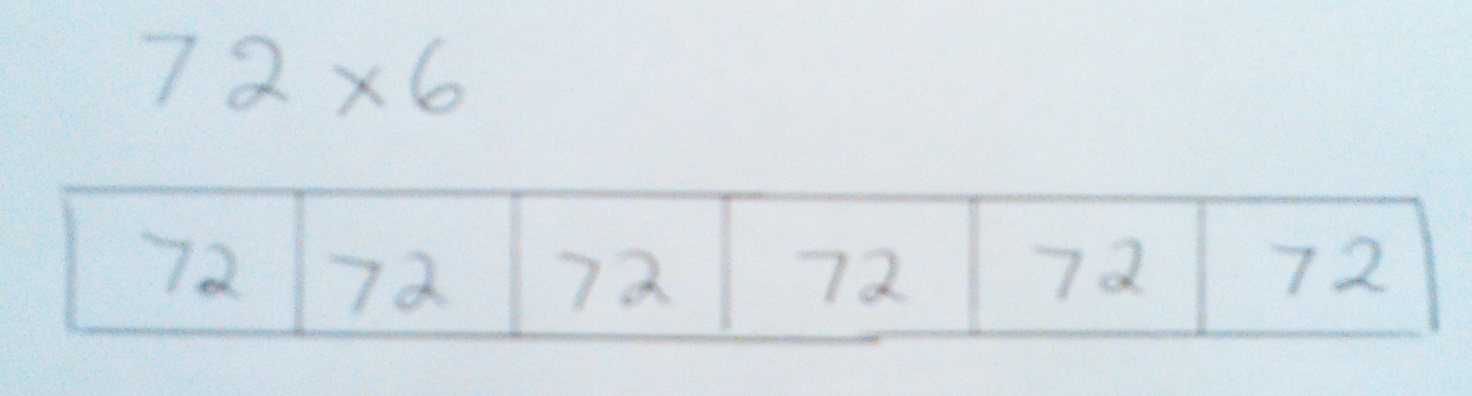 72 x 6
72 72 72 72 72 72